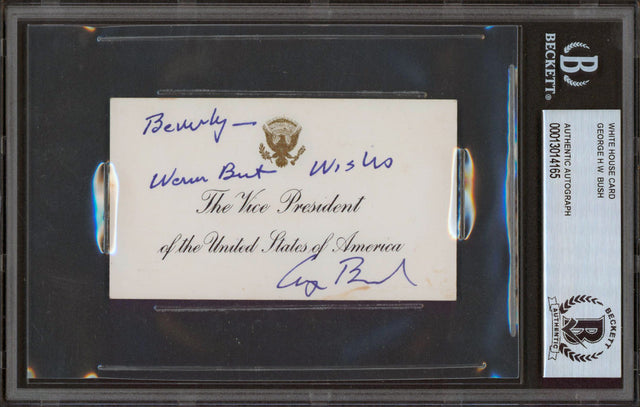 Beverly—
Warm Best Wishes
The Vice President
of the United States of America
George Bush
BECKETT
WHITE HOUSE CARD
GEORGE H.W. BUSH
AUTHENTIC AUTOGRAPH
00013014165
BECKETT
AUTHENTIC